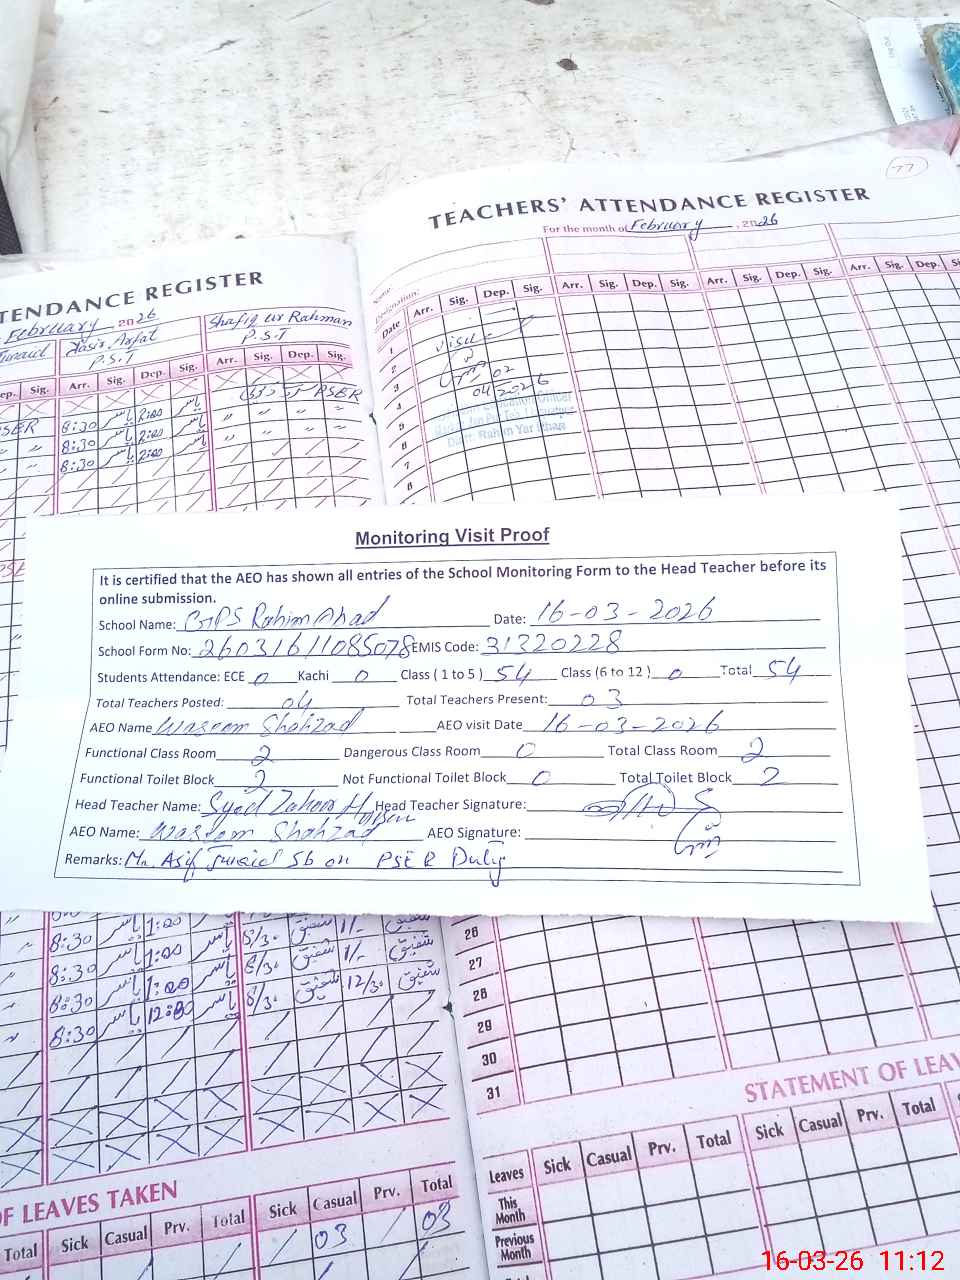 77
TEACHERS' ATTENDANCE REGISTER
For the month of February, 2026
Name:
Designation:
Date Arr. Sig. Dep. Sig. Arr. Sig. Dep. Sig. Arr. Sig. Dep. Sig. Arr. Sig. Dep.
1
2
3
4
5
6
7
8
visit
02
04 2026
Rahim Yar Khan
TENDANCE REGISTER
February, 2026
Yasir Arfat Shafiq ur Rahman
P.S.T P.S.T
ep. Sig. Arr. Sig. Dep. Sig. Arr. Sig. Dep. Sig.
PSER
8:30 یاسر 2:00 یاسر
8:30 یاسر 2:00 یاسر
8:30 یاسر 2:00 یاسر
Monitoring Visit Proof
It is certified that the AEO has shown all entries of the School Monitoring Form to the Head Teacher before its
online submission.
School Name: GPS Rahim Abad Date: 16-03-2026
School Form No: 26031611085078 EMIS Code: 31320228
Students Attendance: ECE 0 Kachi 0 Class ( 1 to 5 ) 54 Class (6 to 12 ) 0 Total 54
Total Teachers Posted: 04 Total Teachers Present: 03
AEO Name Waseem Shahzad AEO visit Date 16-03-2026
Functional Class Room 2 Dangerous Class Room 0 Total Class Room 2
Functional Toilet Block 2 Not Functional Toilet Block 0 Total Toilet Block 2
Head Teacher Name: Syed Zaheer Head Teacher Signature:
AEO Name: Waseem Shahzad AEO Signature:
Remarks: Mr. Asif Junaid Sb on PSER Duty
8:30 یاسر 1:00 یاسر 8/30 شفیق 1/- شفیق
8:30 یاسر 1:00 یاسر 8/30 شفیق 1/- شفیق
8:30 یاسر 1:00 یاسر 8/30 شفیق 12/30 شفیق
8:30 یاسر 12:00 یاسر
26
27
28
29
30
31
OF LEAVES TAKEN
Total Sick Casual Prv. Total Sick Casual Prv. Total
03 03
STATEMENT OF LEAV
Leaves Sick Casual Prv. Total Sick Casual Prv. Total
This
Month
Previous
Month
16-03-26 11:12